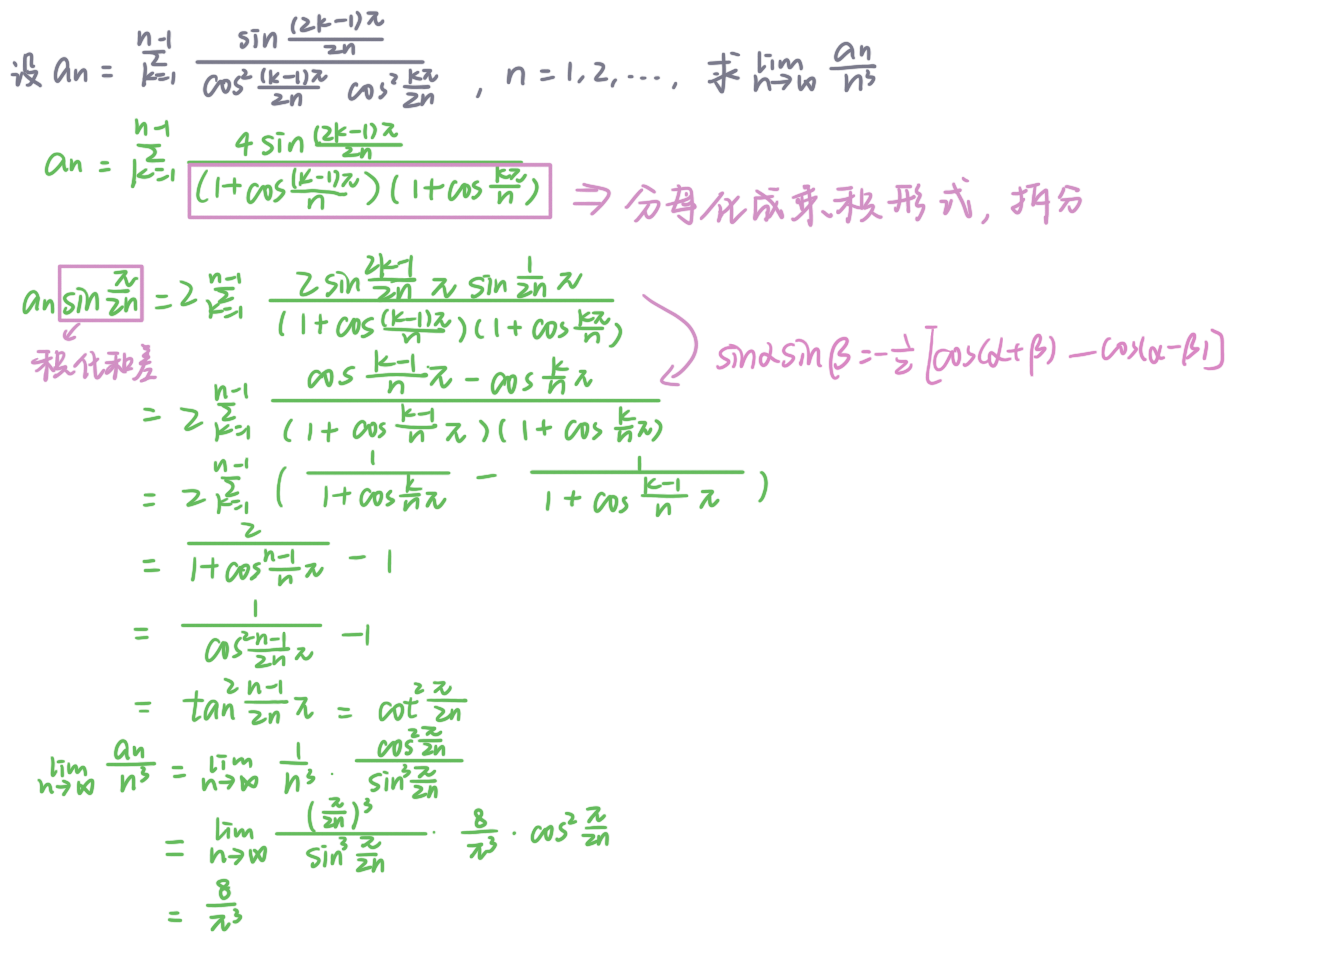 设 aₙ = Σ_{k=1}^{n-1} sin((2k-1)π/2n) / (cos²((k-1)π/2n) cos²(kπ/2n)) , n = 1, 2, ..., 求 lim_{n→∞} aₙ/n³
aₙ = Σ_{k=1}^{n-1} 4 sin((2k-1)π/2n) / ((1+cos((k-1)π/n))(1+cos(kπ/n))) ⇒ 分母化成乘积形式, 拆分
aₙ sin(π/2n) = 2 Σ_{k=1}^{n-1} 2 sin((2k-1)/2n π) sin(1/2n π) / ((1+cos((k-1)π/n))(1+cos(kπ/n)))
积化和差
sinα sinβ = -1/2 [cos(α+β) - cos(α-β)]
= 2 Σ_{k=1}^{n-1} (cos((k-1)/n π) - cos(k/n π)) / ((1+cos((k-1)/n π))(1+cos(k/n π)))
= 2 Σ_{k=1}^{n-1} ( 1/(1+cos(k/n π)) - 1/(1+cos((k-1)/n π)) )
= 2/(1+cos((n-1)/n π)) - 1
= 1/(cos²((n-1)/2n π)) - 1
= tan²((n-1)/2n π) = cot²(π/2n)
lim_{n→∞} aₙ/n³ = lim_{n→∞} 1/n³ · cos²(π/2n) / sin³(π/2n)
= lim_{n→∞} (π/2n)³ / sin³(π/2n) · 8/π³ · cos²(π/2n)
= 8/π³